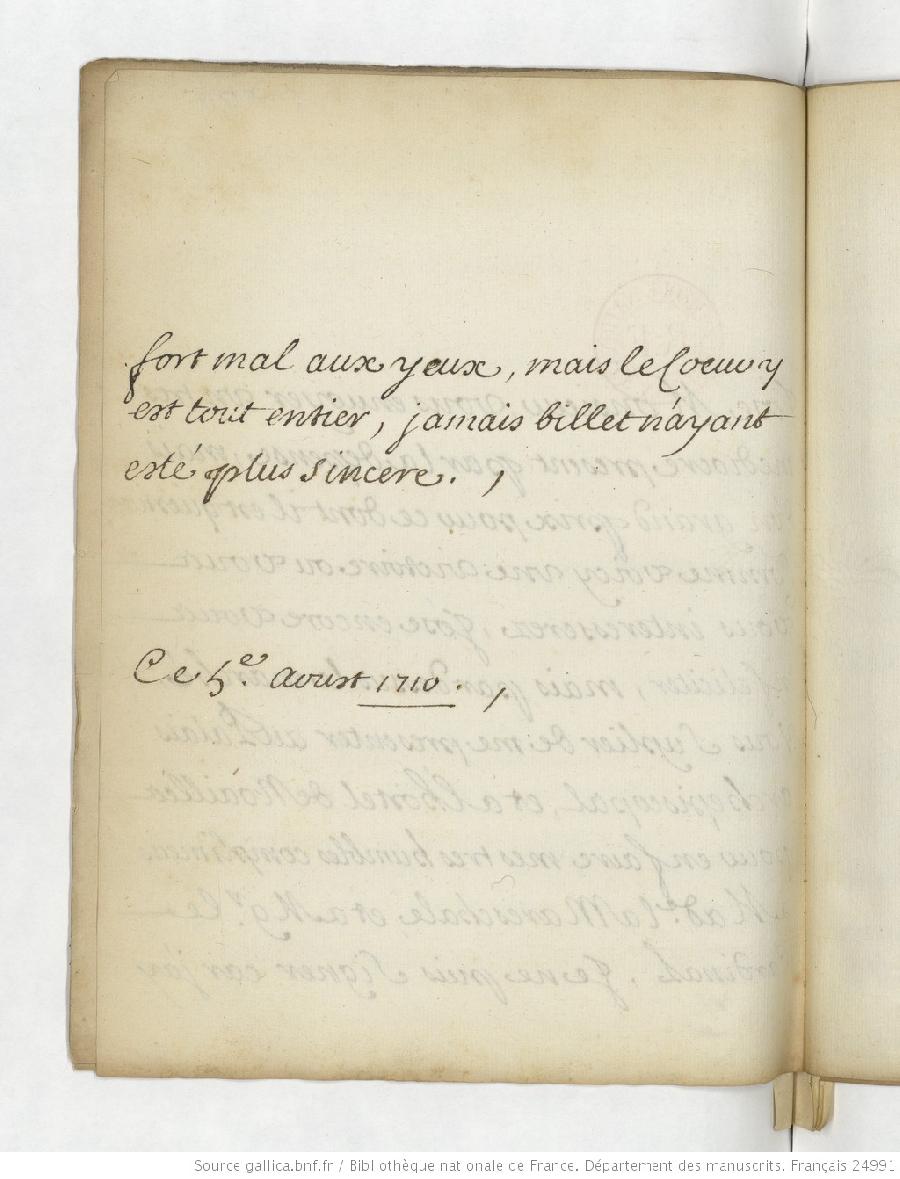 fort mal aux yeux, mais le Coeur y
est tout entier, jamais billet n'ayant
esté plus sincere. ,
Ce 5.e aoust 1710. ,
Source gallica.bnf.fr / Bibliothèque nationale de France. Département des manuscrits. Français 24991